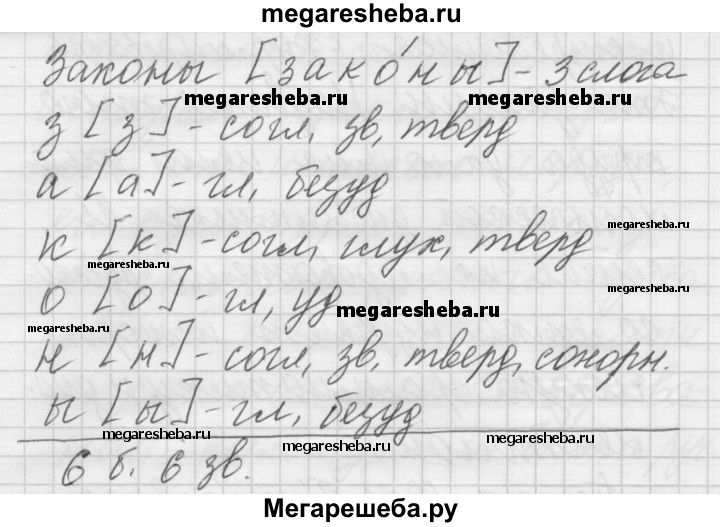 megaresheba.ru
Законы [зако́ны] - 3 слога
megaresheba.ru megaresheba.ru
з [з] - согл, зв, тверд
а [а] - гл, безуд
megaresheba.ru
к [к] - согл, глух, тверд
megaresheba.ru
megaresheba.ru
о [о] - гл, уд
megaresheba.ru
megaresheba.ru
н [н] - согл, зв, тверд, сонорн.
ы [ы] - гл, безуд
megaresheba.ru megaresheba.ru megaresheba.ru
6 б. 6 зв.
Мегарешеба.ру